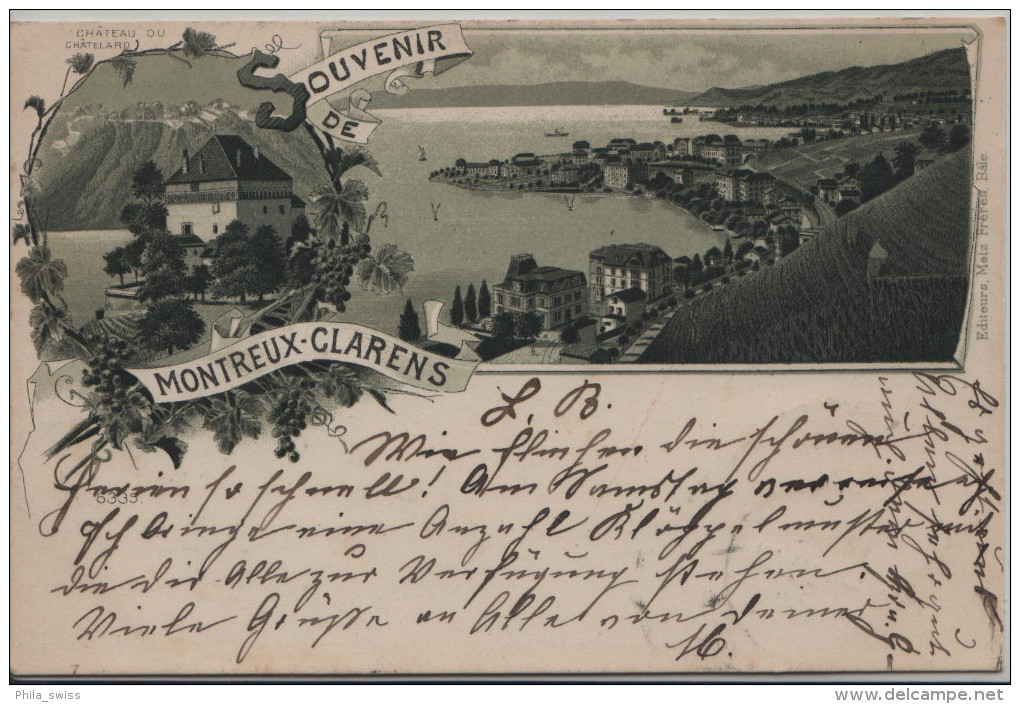 CHÂTEAU DU
CHÂTELARD
SOUVENIR
DE
MONTREUX-CLARENS
Editeurs, Metz Frères, Bâle
6335.
L. B.
Wie fliehen die schönen
Ferien so schnell! Am Samstag verreise
Ich bringe eine Anzahl Klöppelmuster mit
die dir Alle zur Verfügung stehen.
Viele Grüsse an Alle von deiner
M.
Phila_swiss
www.delcampe.net